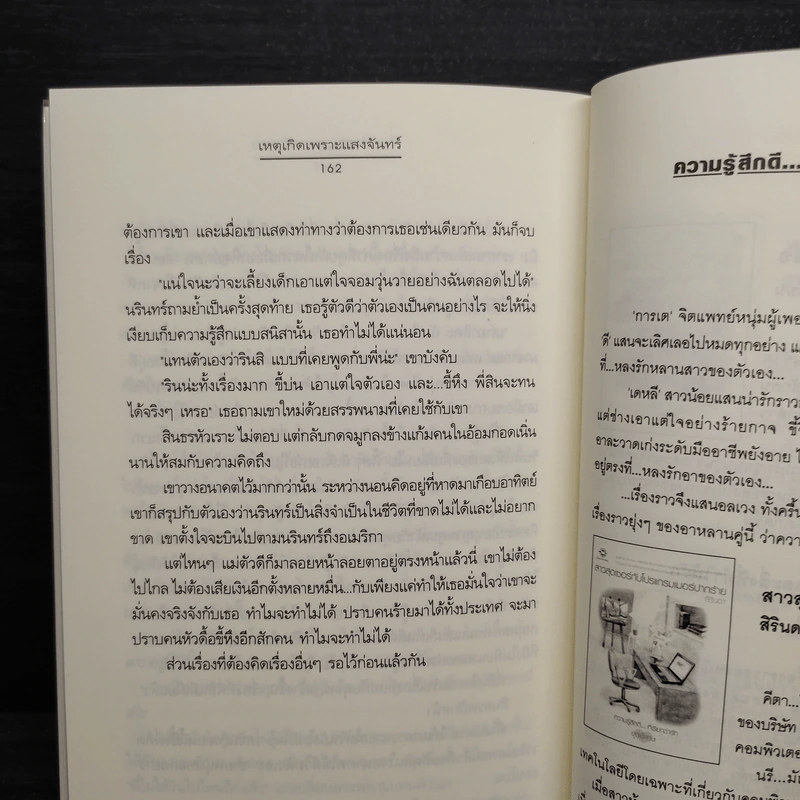 เหตุเกิดเพราะแสงจันทร์
162
ต้องการเขา และเมื่อเขาแสดงท่าทางว่าต้องการเธอเช่นเดียวกัน มันก็จบ
เรื่อง
"แน่ใจนะว่าจะเลี้ยงเด็กเอาแต่ใจจอมวุ่นวายอย่างฉันตลอดไปได้"
นรินทร์ถามย้ำเป็นครั้งสุดท้าย เธอรู้ตัวดีว่าตัวเองเป็นคนอย่างไร จะให้นิ่ง
เงียบเก็บความรู้สึกแบบสนิสานั้น เธอทำไม่ได้แน่นอน
"แทนตัวเองว่ารินสิ แบบที่เคยพูดกับพี่น่ะ" เขาบังคับ
"รินน่ะทั้งเรื่องมาก ขี้บ่น เอาแต่ใจตัวเอง และ...ขี้หึง พี่สินจะทน
ได้จริงๆ เหรอ" เธอถามเขาใหม่ด้วยสรรพนามที่เคยใช้กับเขา
สินธรหัวเราะ ไม่ตอบ แต่กลับกดจมูกลงข้างแก้มคนในอ้อมกอดเนิ่น
นานให้สมกับความคิดถึง
เขาวางอนาคตไว้มากกว่านั้น ระหว่างนอนคิดอยู่ที่หาดมาเกือบอาทิตย์
เขาก็สรุปกับตัวเองว่านรินทร์เป็นสิ่งจำเป็นในชีวิตที่ขาดไม่ได้และไม่อยาก
ขาด เขาตั้งใจจะบินไปตามนรินทร์ถึงอเมริกา
แต่ไหนๆ แม่ตัวดีก็มาลอยหน้าลอยตาอยู่ตรงหน้าแล้วนี่ เขาไม่ต้อง
ไปไกล ไม่ต้องเสียเงินอีกตั้งหลายหมื่น...กับเพียงแค่ทำให้เธอมั่นใจว่าเขาจะ
มั่นคงจริงจังกับเธอ ทำไมจะทำไม่ได้ ปราบคนร้ายมาได้ทั้งประเทศ จะมา
ปราบคนหัวดื้อขี้หึงอีกสักคน ทำไมจะทำไม่ได้
ส่วนเรื่องที่ต้องคิดเรื่องอื่นๆ รอไว้ก่อนแล้วกัน
ความรู้สึกดี...
'การเต' จิตแพทย์หนุ่มผู้เพอ
ดี' แสนจะเลิศเลอไปหมดทุกอย่าง แ
ที่...หลงรักหลานสาวของตัวเอง...
'เดหลี' สาวน้อยแสนน่ารักราว
แต่ช่างเอาแต่ใจอย่างร้ายกาจ ขี้
อาละวาดเก่งระดับมืออาชีพยังอาย ไ
อยู่ตรงที่...หลงรักอาของตัวเอง...
...เรื่องราวจึงแสนอลเวง ทั้งครื้น
เรื่องราวยุ่งๆ ของอาหลานคู่นี้ ว่าควา
สาวสุดเซอร์กับโปรแกรมเมอร์ปากร้าย
สิรินดา
สาวสุ
สิรินด
คีตา...
ของบริษัท
คอมพิวเตอ
นรี...มัก
เทคโนโลยีโดยเฉพาะที่เกี่ยวกับคอมพิว